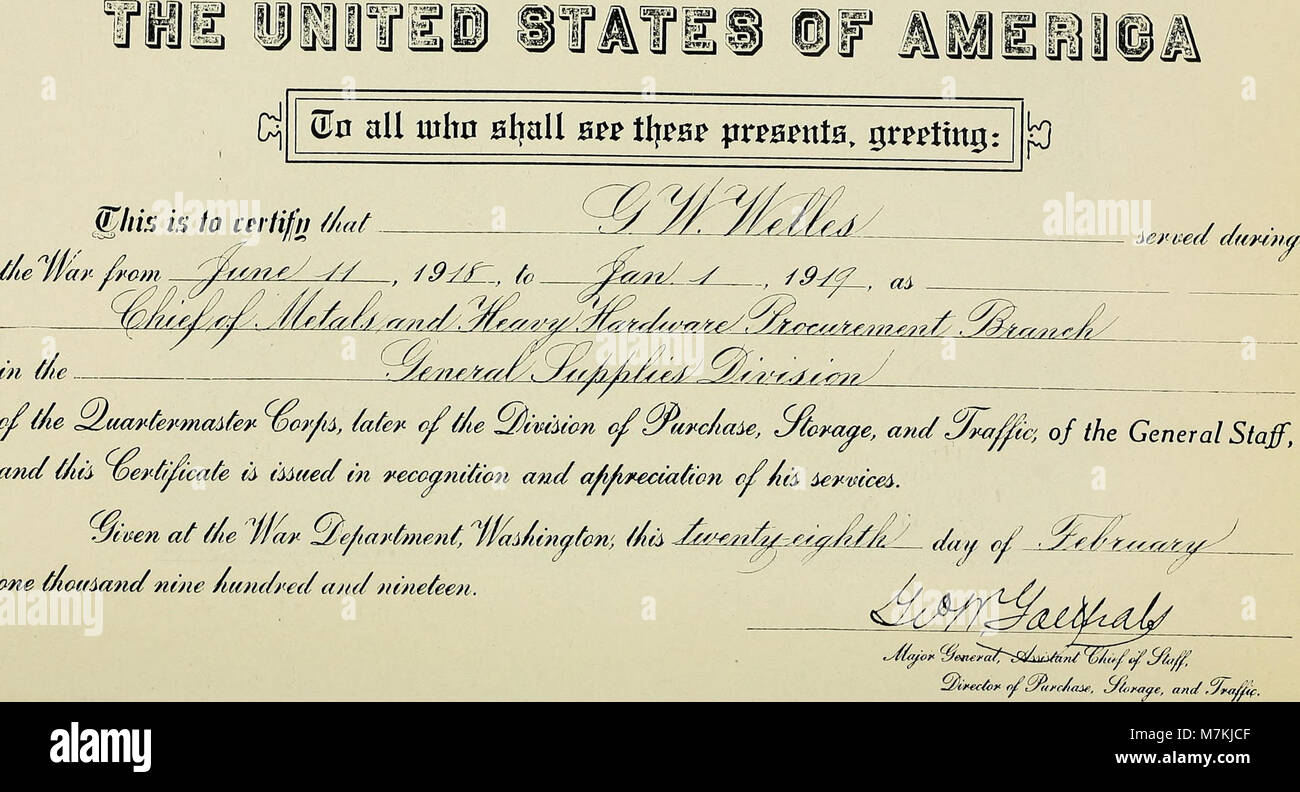 THE UNITED STATES OF AMERICA
To all who shall see these presents, greeting:
This is to certify that G. W. Welles served during
the War from June 11, 1918, to Jan. 1, 1919, as
Chief of Metals and Heavy Hardware Procurement Branch
in the General Supplies Division
of the Quartermaster Corps, later of the Division of Purchase, Storage, and Traffic, of the General Staff,
and this Certificate is issued in recognition and appreciation of his services.
Given at the War Department, Washington, this twenty-eighth day of February
one thousand nine hundred and nineteen.
Geo W Goethals
Major General, Assistant Chief of Staff,
Director of Purchase, Storage, and Traffic.
alamy
Image ID: M7KJCF
www.alamy.com